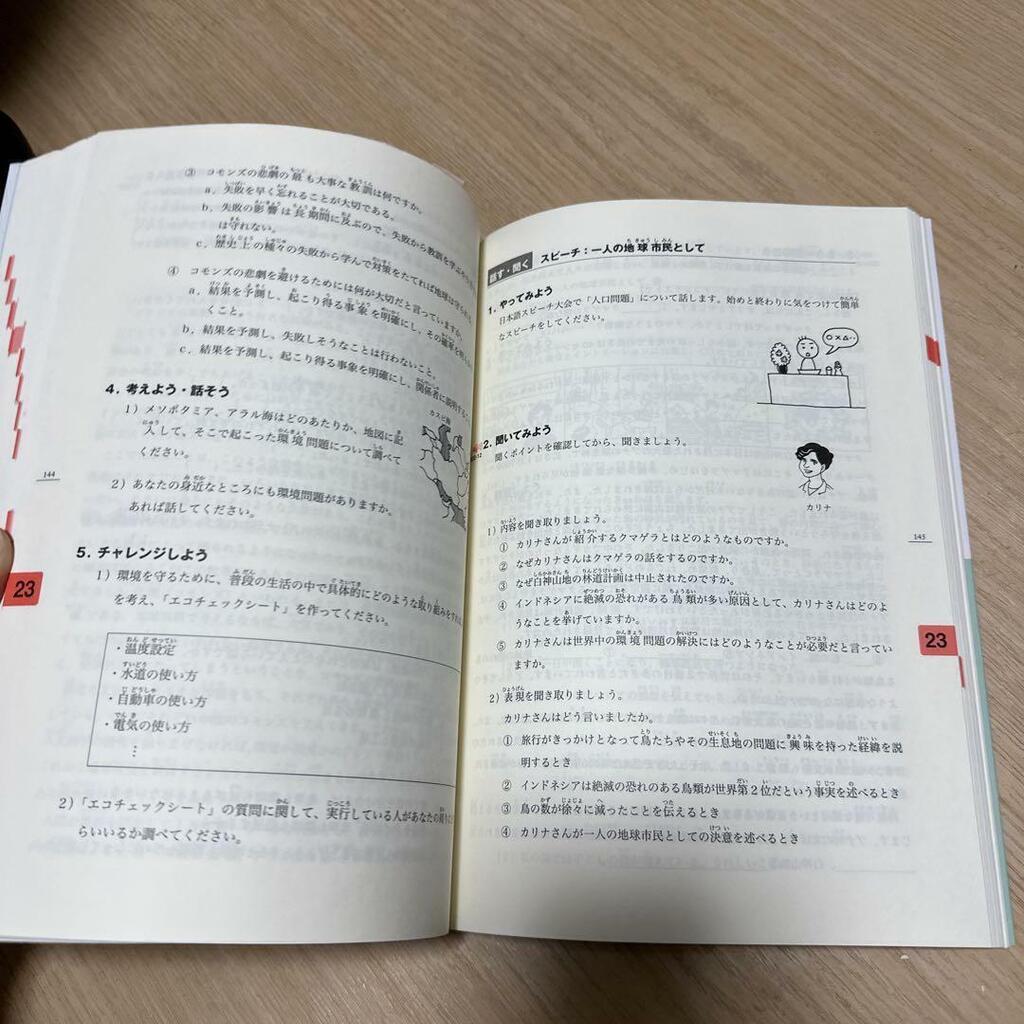 ③ コモンズの悲劇の最も大事な教訓は何ですか。
a．失敗を早く忘れることが大切である。
b．失敗の影響は長期間に及ぶので、失敗から教訓を学ぶ
は守れない。
c．歴史上の種々の失敗から学んで対策をたてれば地球は守られる
④ コモンズの悲劇を避けるためには何が大切だと言っていますか。
a．結果を予測し、起こり得る事象を明確にし、その確率を
くこと。
b．結果を予測し、失敗しそうなことは行わないこと。
c．結果を予測し、起こり得る事象を明確にし、関係者に説明する
4. 考えよう・話そう
1）メソポタミア、アラル海はどのあたりか、地図に記
入して、そこで起こった環境問題について調べて
ください。
カスピ海
2）あなたの身近なところにも環境問題がありますか。
あれば話してください。
144
5. チャレンジしよう
1）環境を守るために、普段の生活の中で具体的にどのような取り組みをすれば
を考え、「エコチェックシート」を作ってください。
23
・温度設定
・水道の使い方
・自動車の使い方
・電気の使い方
⋮
2）「エコチェックシート」の質問に関して、実行している人があなたの周りに
らいいるか調べてください。
話す・聞く
スピーチ：一人の地球市民として
1. やってみよう
日本語スピーチ大会で「人口問題」について話します。始めと終わりに気をつけて簡単
なスピーチをしてください。
○×△‥
2. 聞いてみよう
聞くポイントを確認してから、聞きましょう。
カリナ
1）内容を聞き取りましょう。
① カリナさんが紹介するクマゲラとはどのようなものですか。
② なぜカリナさんはクマゲラの話をするのですか。
③ なぜ白神山地の林道計画は中止されたのですか。
④ インドネシアに絶滅の恐れがある鳥類が多い原因として、カリナさんはどのよ
うなことを挙げていますか。
⑤ カリナさんは世界中の環境問題の解決にはどのようなことが必要だと言ってい
ますか。
145
23
2）表現を聞き取りましょう。
カリナさんはどう言いましたか。
① 旅行がきっかけとなって鳥たちやその生息地の問題に興味を持った経緯を説
明するとき
② インドネシアは絶滅の恐れのある鳥類が世界第2位だという事実を述べるとき
③ 鳥の数が徐々に減ったことを伝えるとき
④ カリナさんが一人の地球市民としての決意を述べるとき